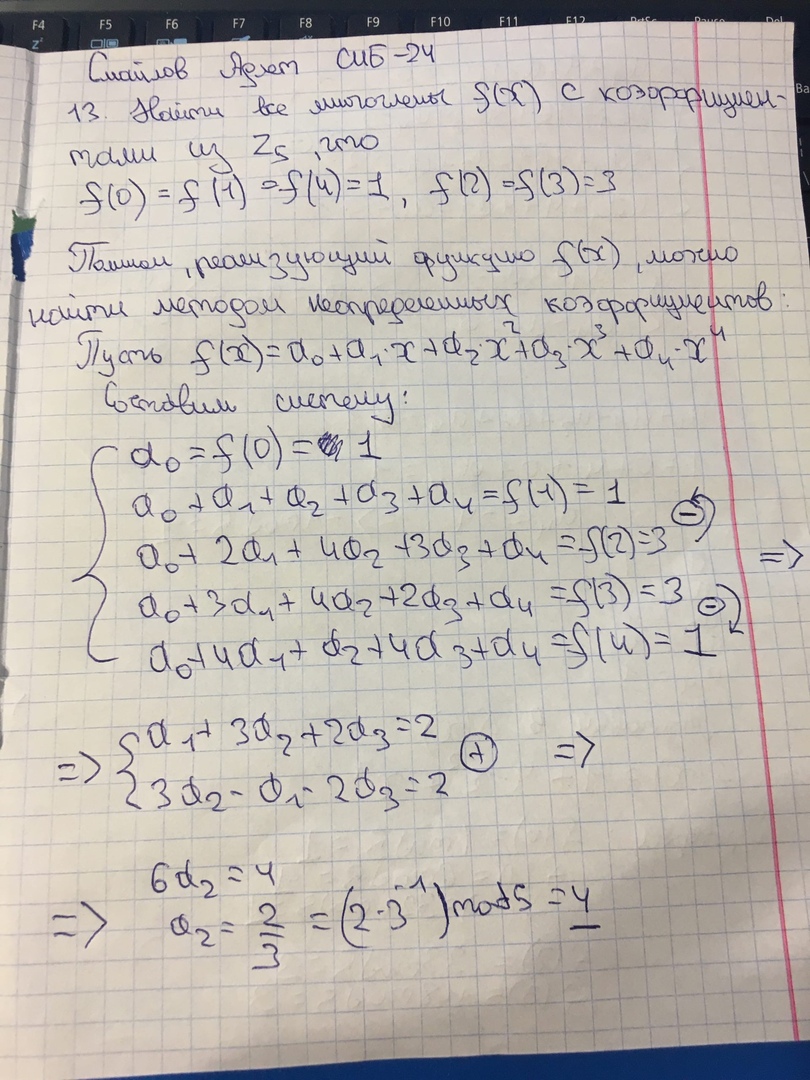 F4 F5 F6 F7 F8 F9 F10 F11 F12 PrtSc Pause Del
Смайлов Адлет СИБ-24
13. Найти все многочлены f(x) с коэффициен-
тами из Z₅, что
f(0) = f(1) = f(4) = 1, f(2) = f(3) = 3
Полином, реализующий функцию f(x), можно
найти методом неопределенных коэффициентов:
Пусть f(x) = a₀ + a₁·x + a₂·x² + a₃·x³ + a₄·x⁴
Составим систему:
a₀ = f(0) = 1
a₀ + a₁ + a₂ + a₃ + a₄ = f(1) = 1
a₀ + 2a₁ + 4a₂ + 3a₃ + a₄ = f(2) = 3 ⊖ =>
a₀ + 3a₁ + 4a₂ + 2a₃ + a₄ = f(3) = 3 ⊖
a₀ + 4a₁ + a₂ + 4a₃ + a₄ = f(4) = 1
=> { a₁ + 3a₂ + 2a₃ = 2 ⊕ =>
3a₂ - a₁ - 2a₃ = 2
6a₂ = 4
=> a₂ = 2/3 = (2·3⁻¹) mod 5 = 4